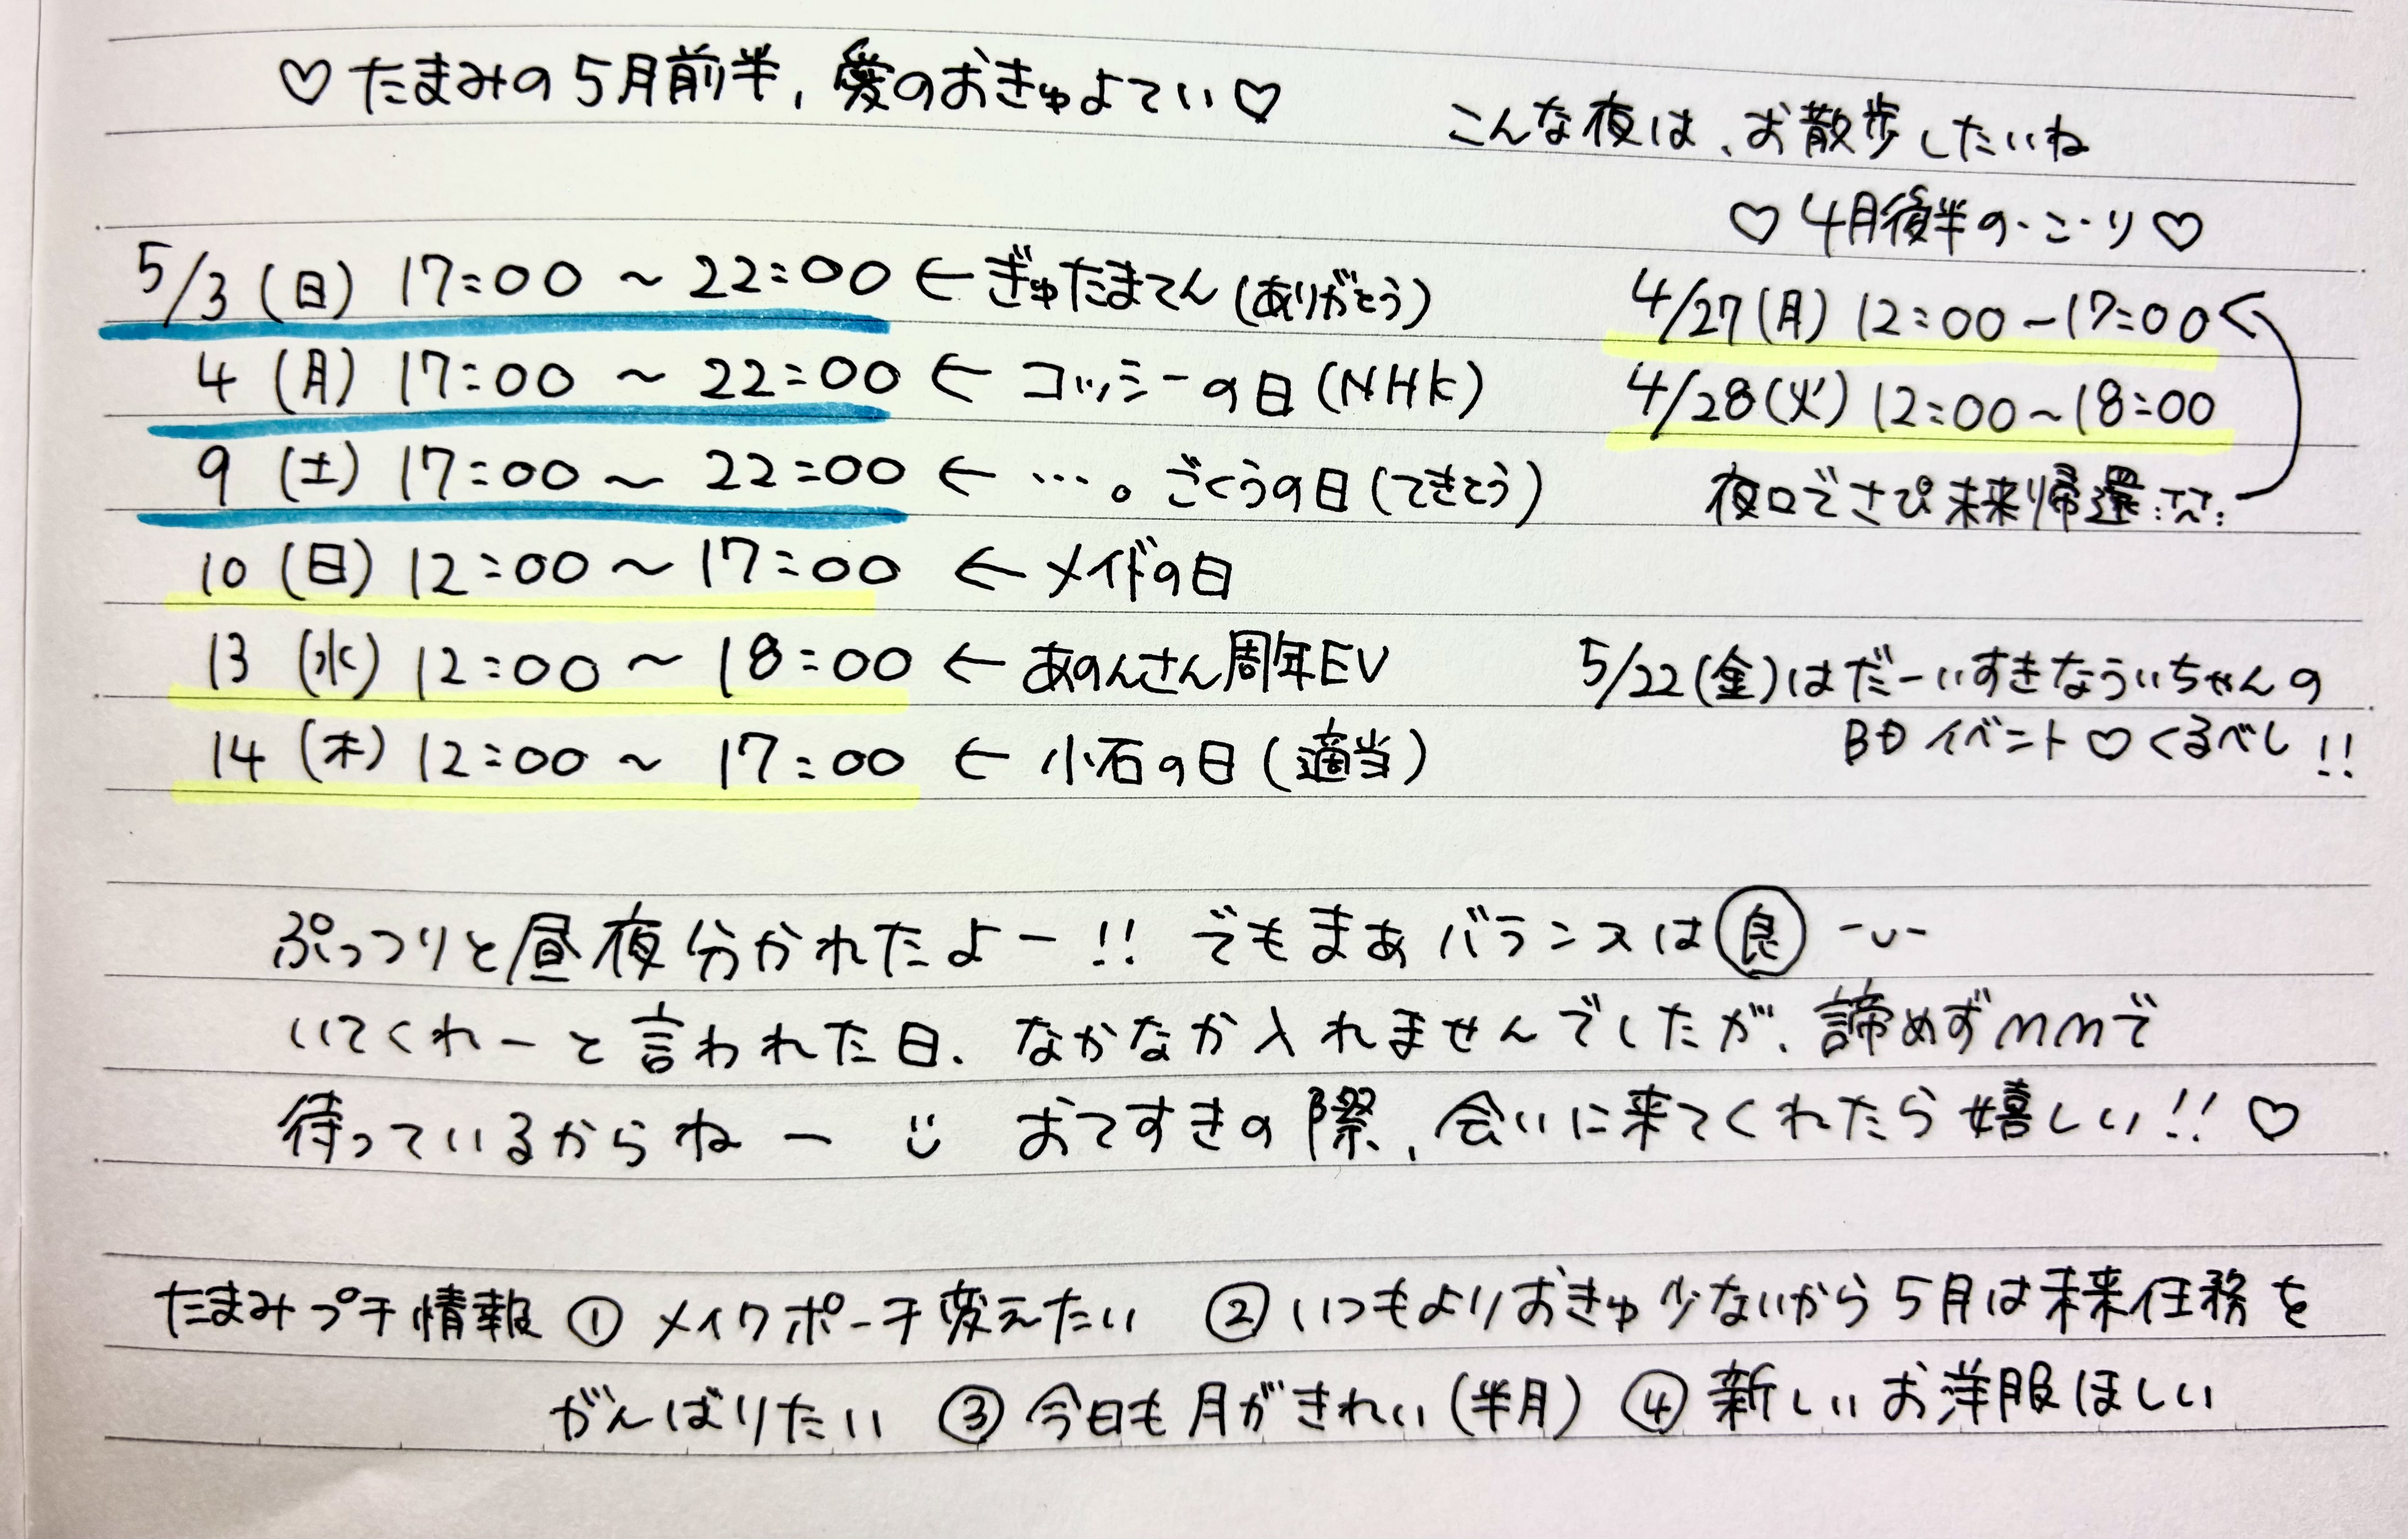 ♡たまみの5月前半、愛のおきゅよてい♡
こんな夜は、お散歩したいね
♡4月後半の・こ・り♡
4/27(月) 12:00〜17:00
4/28(火) 12:00〜18:00
夜ロでさぴ未来帰還
5/3(日) 17:00〜22:00 ←ぎゅたまてん(ありがとう)
4(月) 17:00〜22:00 ← コッシーの日(NHK)
9(土) 17:00〜22:00 ← …。ごくうの日(てきとう)
10(日) 12:00〜17:00 ←メイドの日
13(水) 12:00〜18:00 ←あのんさん周年EV
14(木) 12:00〜17:00 ← 小石の日(適当)
5/22(金)はだーいすきなういちゃんの
BDイベント♡くるべし!!
ぷっつりと昼夜分かれたよー!! でもまあバランスは良 -ᴗ-
いてくれーと言われた日、なかなか入れませんでしたが、諦めずmmで
待っているからねー ご おてすきの際、会いに来てくれたら嬉しい!!♡
たまみプチ情報 ① メイクポーチ変えたい ②いつもよりおきゅ少ないから5月は未来任務を
がんばりたい ③ 今日も月がきれい(半月) ④ 新しいお洋服ほしい